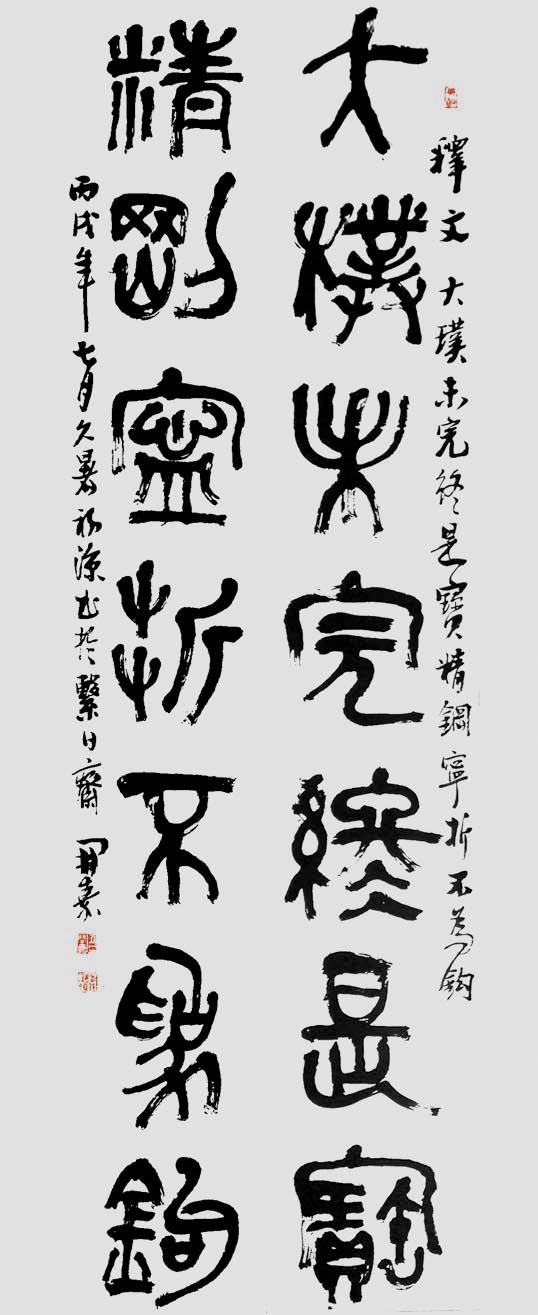 釋文 大璞未完終是寶精鋼寧折不為鈎
大樸未完終是寶
精剛寧折不為鉤
丙戌年七月久暑初涼書於繫日齋